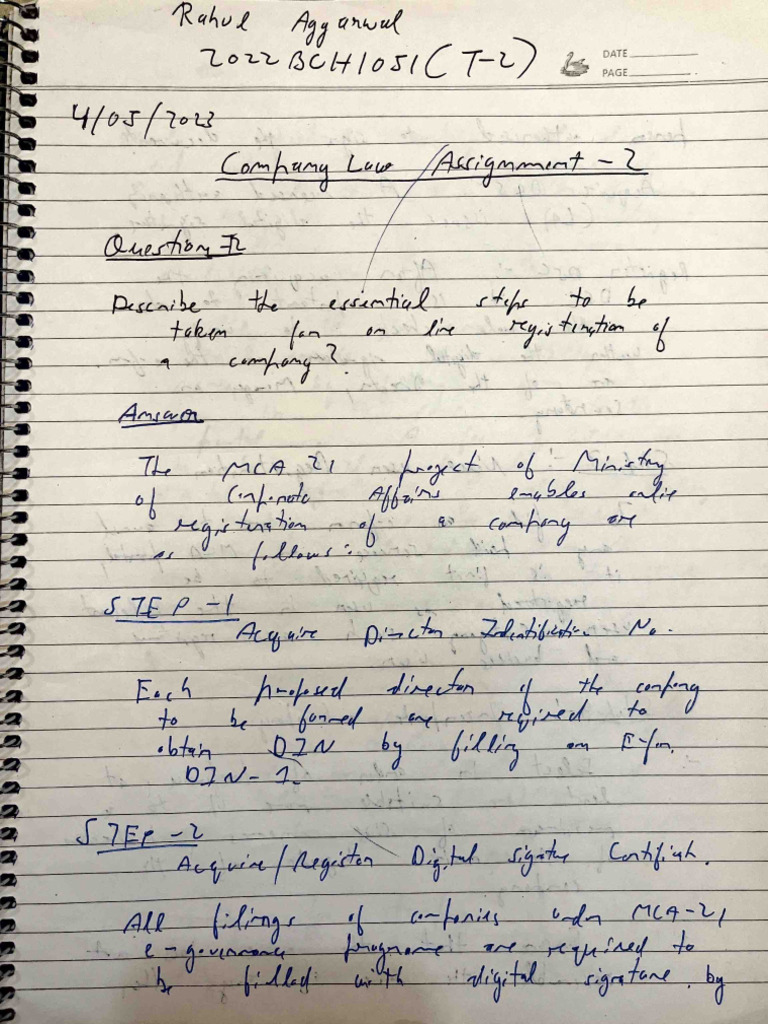 Rahul Aggarwal
2022BCH1051 (T-2)
DATE
PAGE
4/05/2023
Company Law Assignment - 2
Question I2
Describe the essential steps to be
taken for on line registration of
a company?
Answer
The MCA 21 project of Ministry
of Corporate Affairs enables
registration of a company are
as follows:
STEP-1
Acquire Director Identification No.
Each proposed director of the company
to be formed are required to
obtain DIN by filling an E-for.
DIN-1.
STEP-2
Acquire/Register Digital signatue Certificate.
All filings of companies under MCA-21
e-governance programe are required to
be filled with digital signature. by